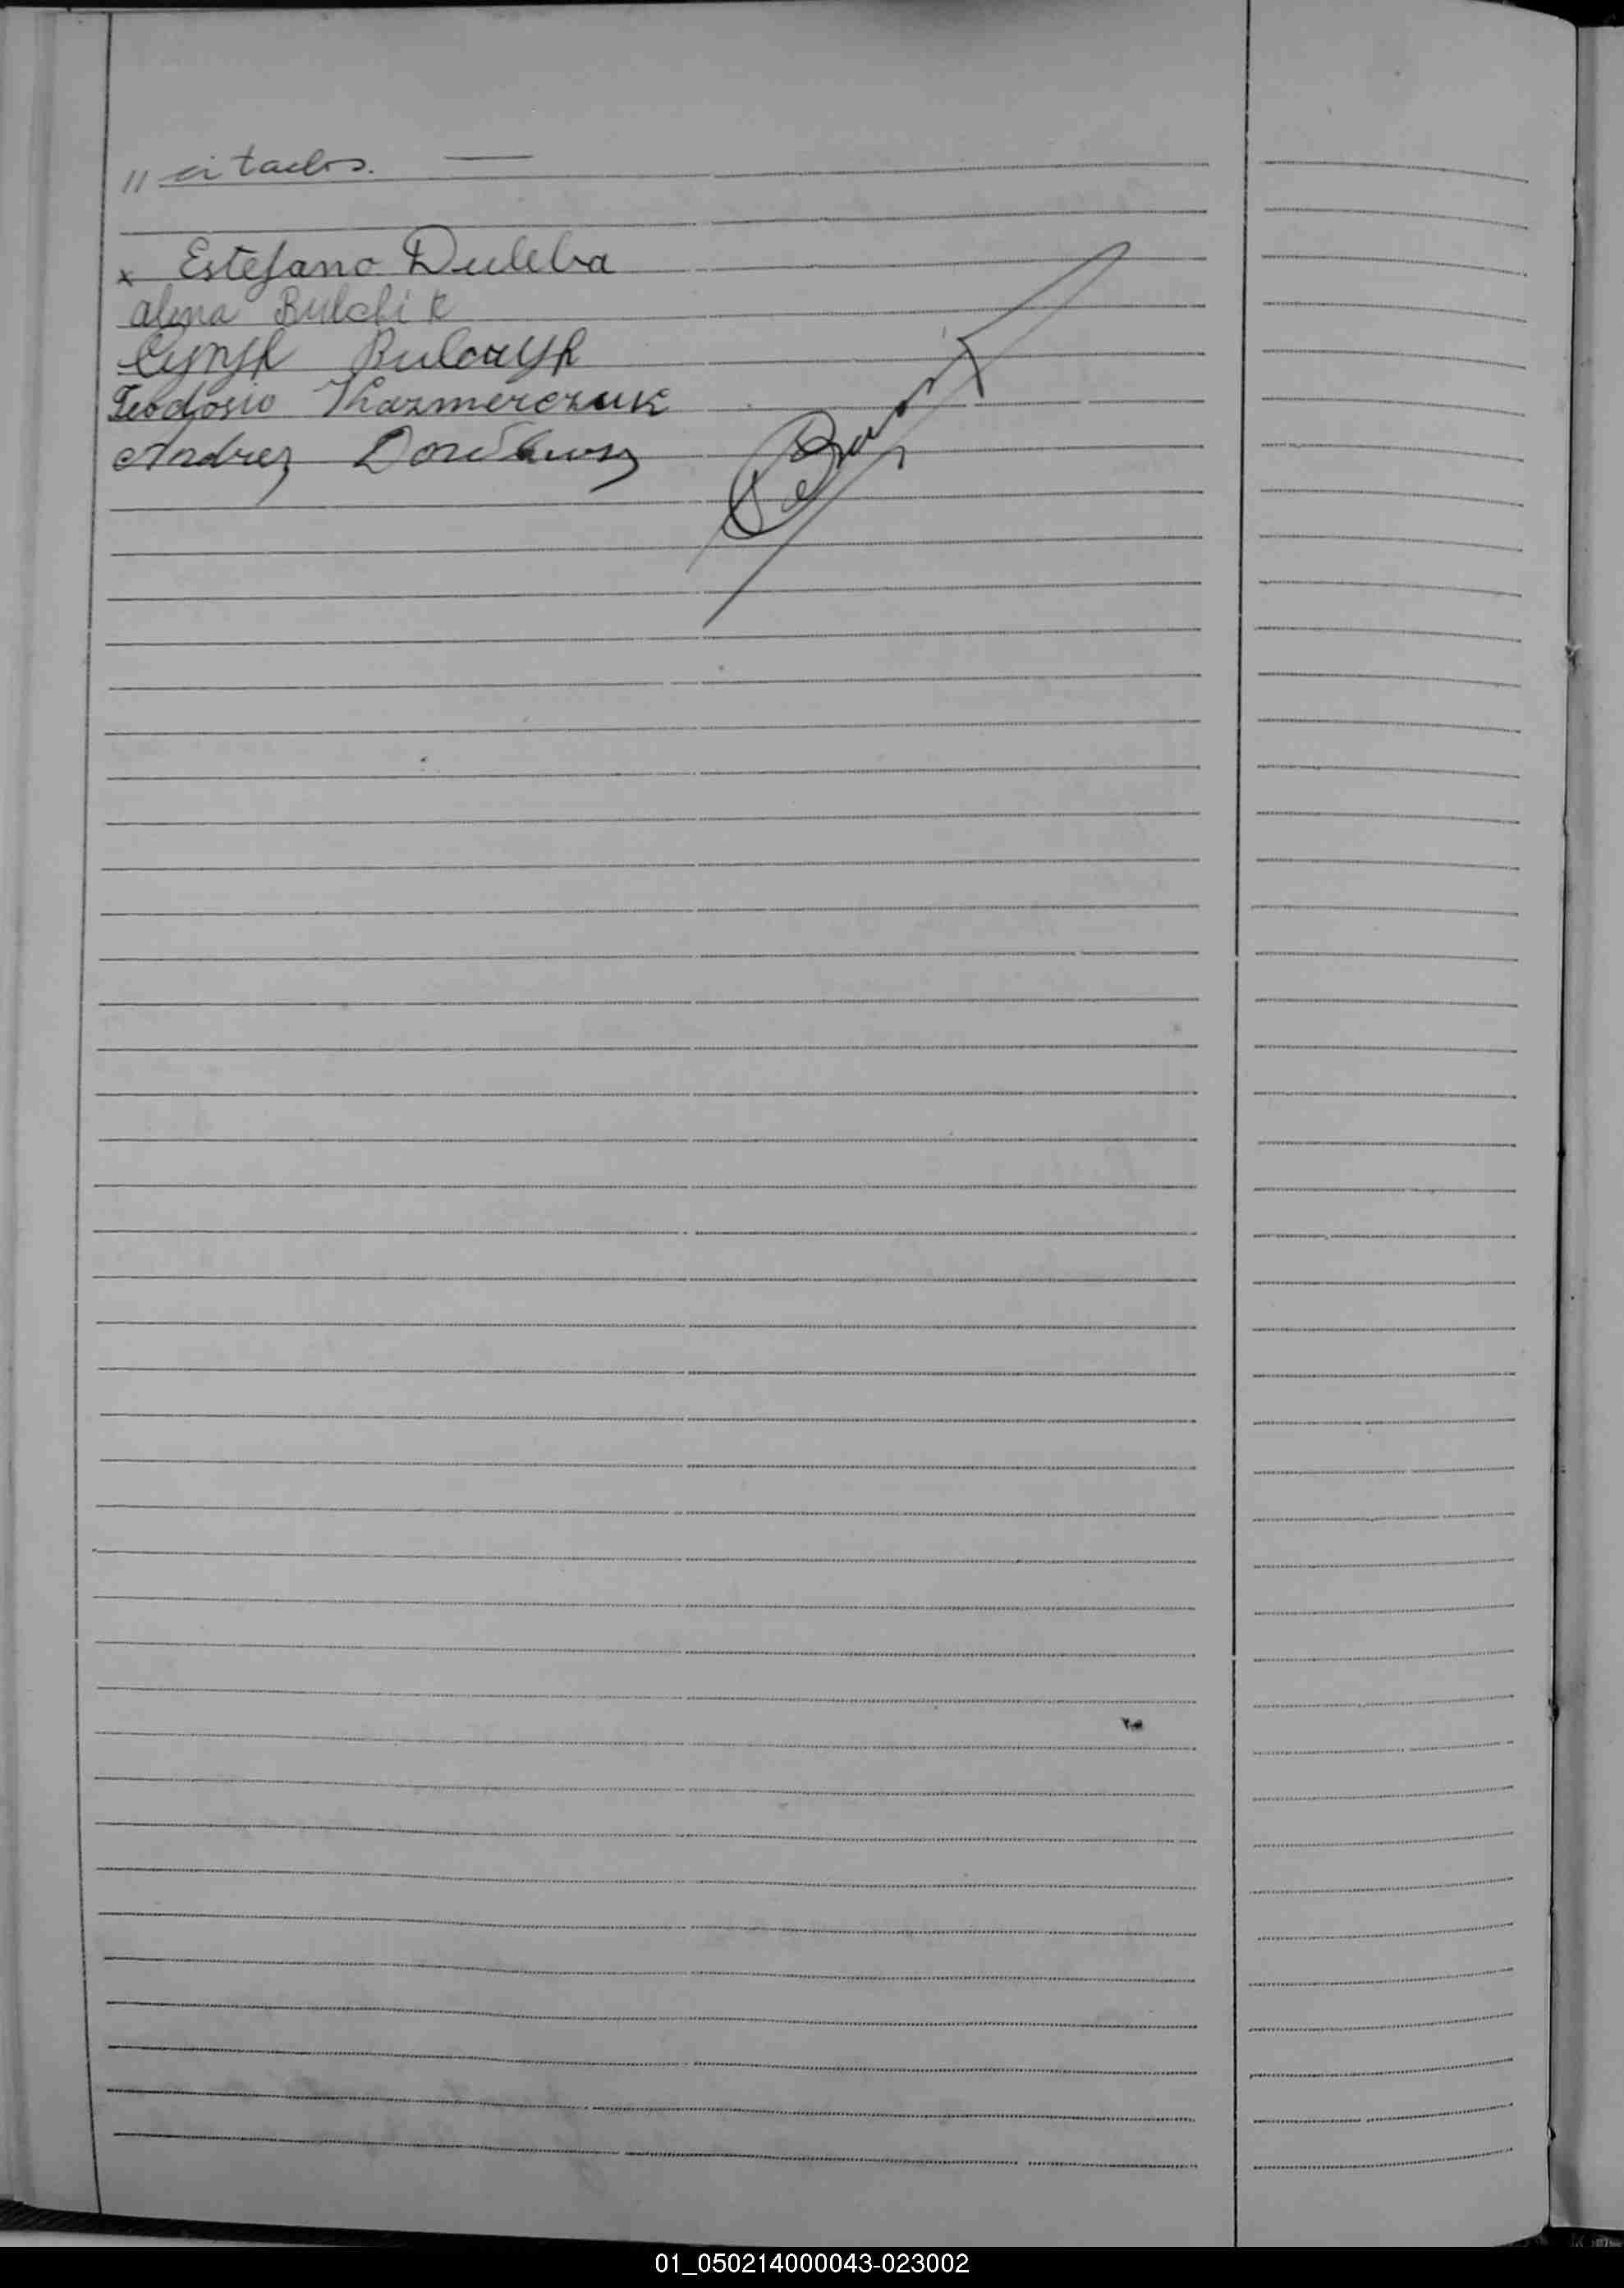 " citados. —
x Estefano Duleba
Alyna Bulchik
Cyryl Bulczyk
Teodosio Khazmerczuk
Andrez
01_050214000043-023002